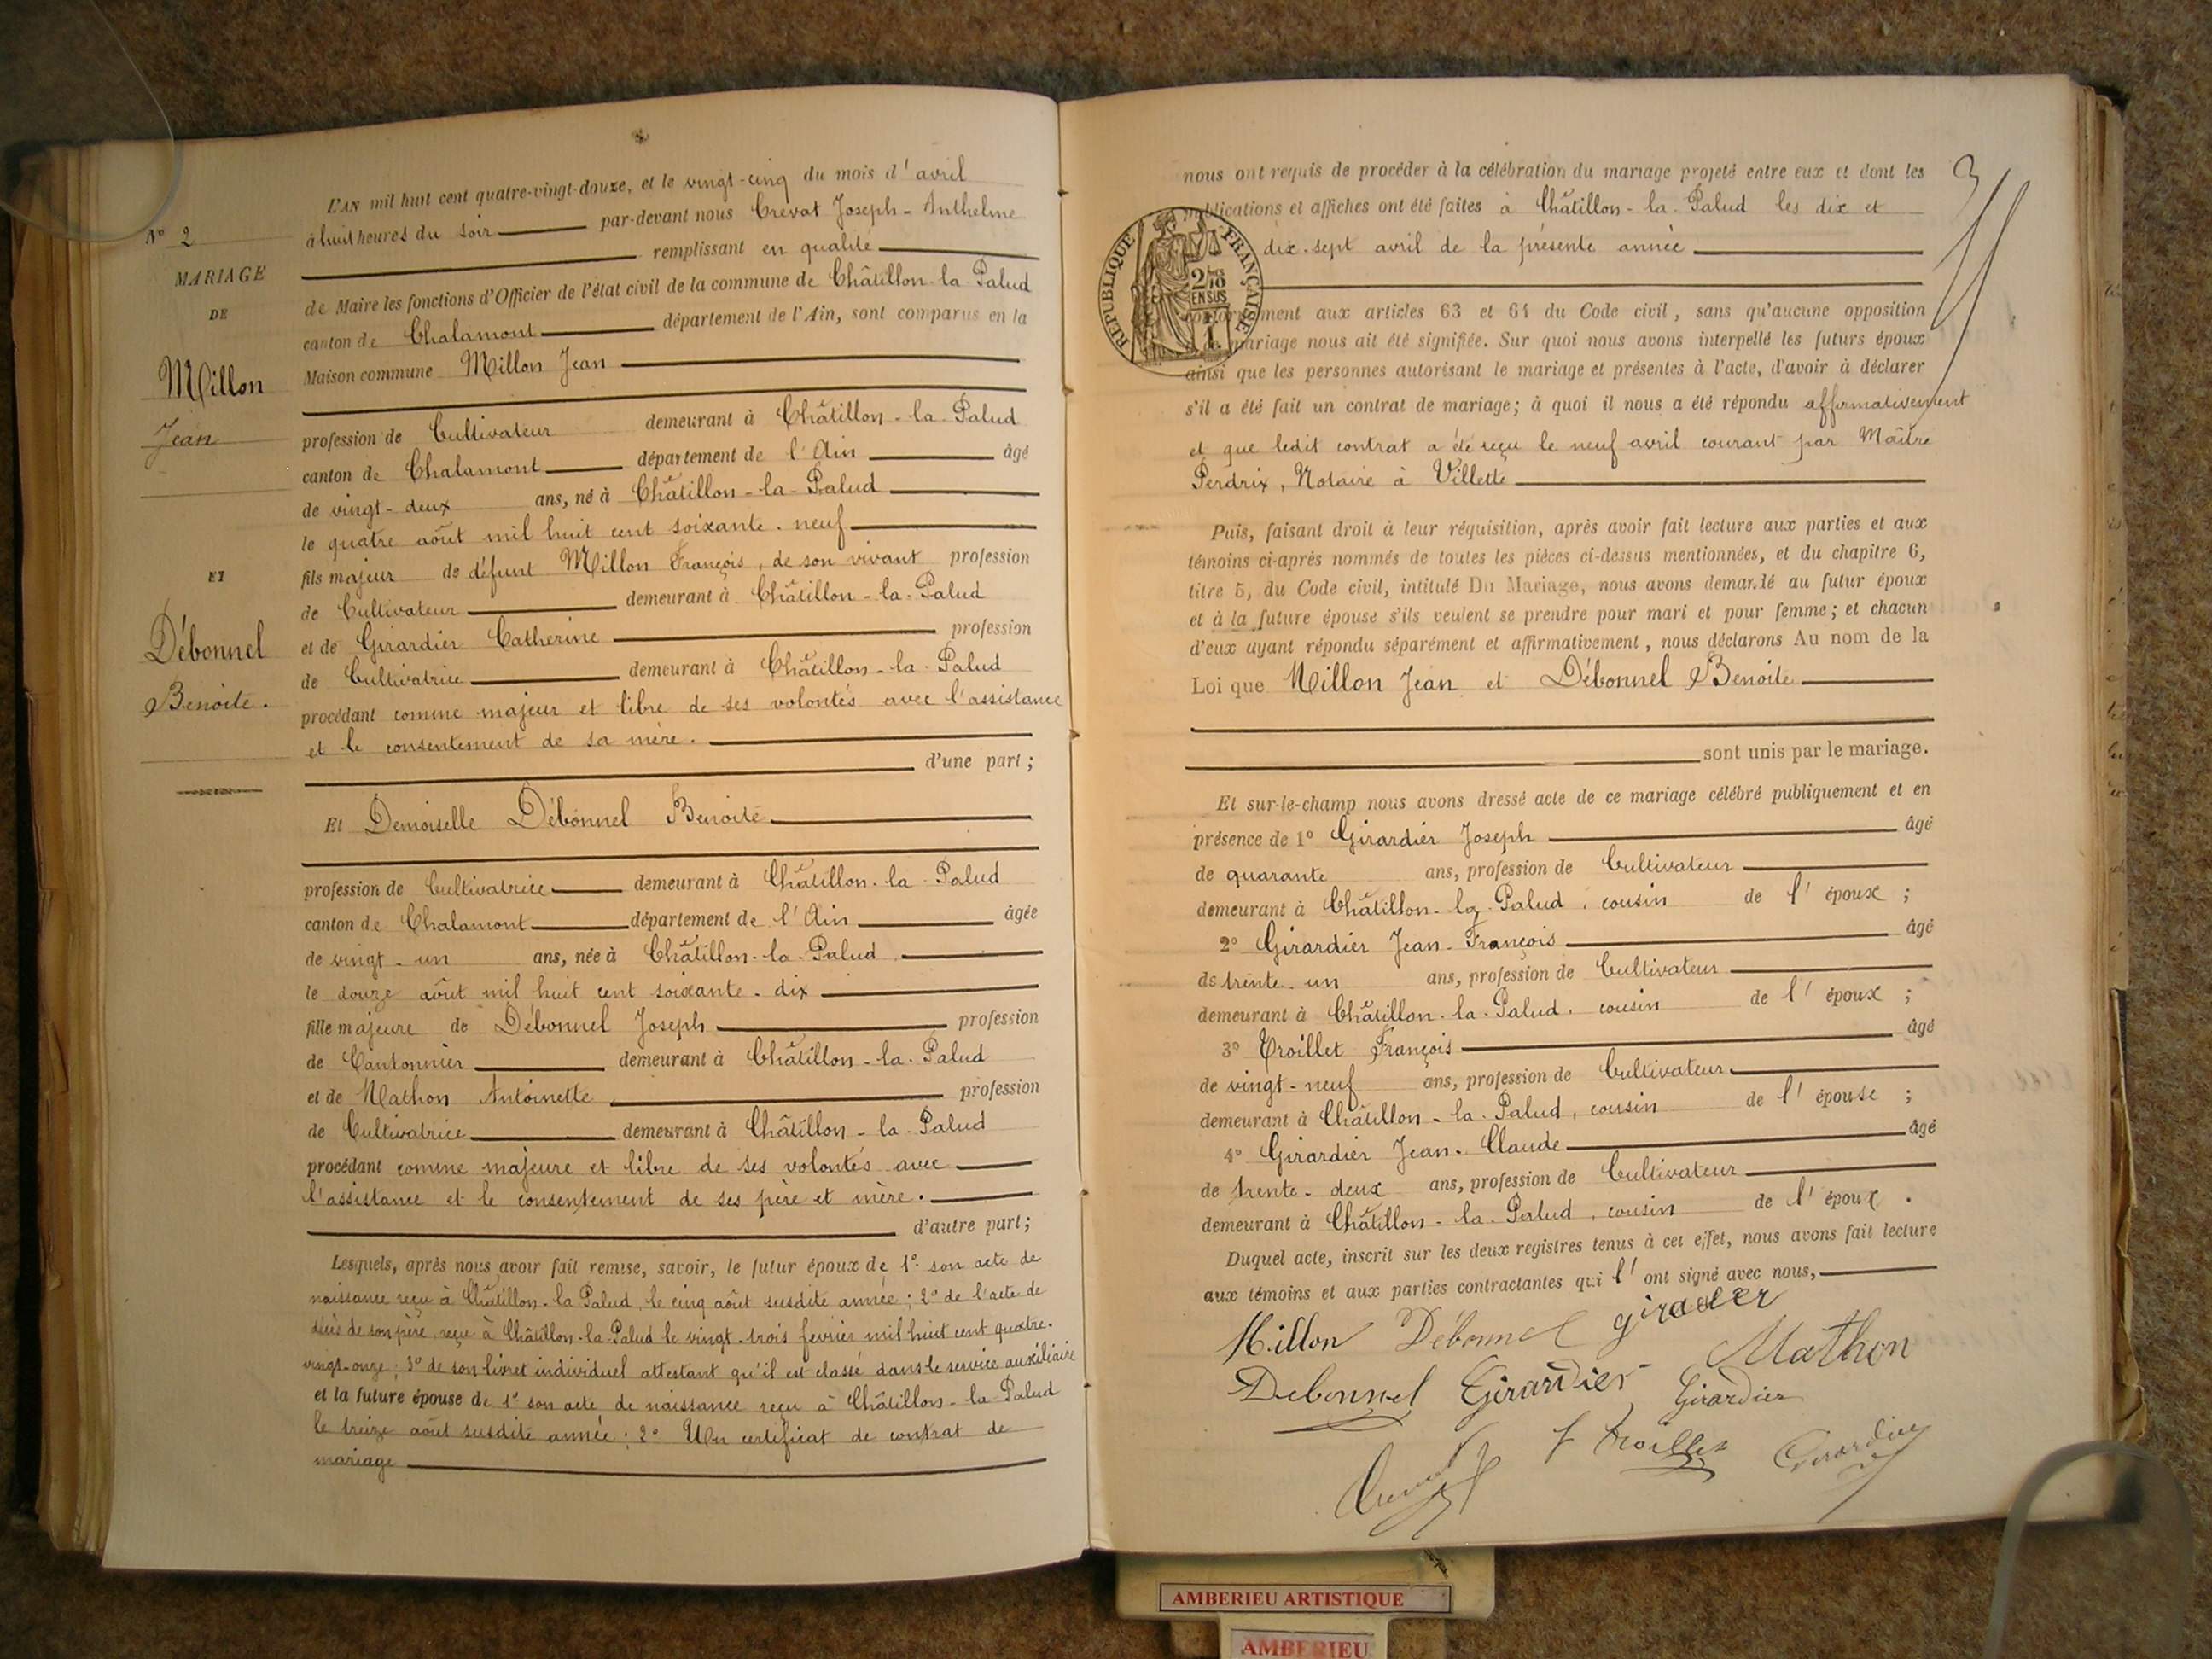 N° 2
MARIAGE
DE
Millon
Jean
ET
Débonnel
Benoite.
L'AN mil huit cent quatre-vingt-douze, et le vingt-cinq du mois d'avril
à huit heures du soir par-devant nous Crevat Joseph-Anthelme
remplissant en qualité
de Maire les fonctions d'Officier de l'état civil de la commune de Châtillon-la-Palud
canton de Chalamont département de l'Ain, sont comparus en la
Maison commune Millon Jean
profession de Cultivateur demeurant à Châtillon-la-Palud
canton de Chalamont département de l'Ain âgé
de vingt-deux ans, né à Châtillon-la-Palud
le quatre août mil huit cent soixante-neuf
fils majeur de défunt Millon François, de son vivant profession
de Cultivateur demeurant à Châtillon-la-Palud
et de Girardier Catherine profession
de Cultivatrice demeurant à Châtillon-la-Palud
procédant comme majeur et libre de ses volontés avec l'assistance
et le consentement de sa mère.
d'une part ;
Et Demoiselle Débonnel Benoite
profession de Cultivatrice demeurant à Châtillon-la-Palud
canton de Chalamont département de l'Ain âgée
de vingt-un ans, née à Châtillon-la-Palud
le douze août mil huit cent soixante-dix
fille majeure de Débonnel Joseph profession
de Cantonnier demeurant à Châtillon-la-Palud
et de Mathon Antoinette profession
de Cultivatrice demeurant à Châtillon-la-Palud
procédant comme majeure et libre de ses volontés avec
l'assistance et le consentement de ses père et mère.
d'autre part ;
Lesquels, après nous avoir fait remise, savoir, le futur époux de 1° son acte de
naissance reçu à Châtillon-la-Palud, le cinq août susdite année ; 2° de l'acte de
décès de son père, reçu à Châtillon-la-Palud le vingt-trois février mil huit cent quatre-
vingt-onze ; 3° de son livret individuel attestant qu'il est classé dans le service auxiliaire
et la future épouse de 1° son acte de naissance reçu à Châtillon-la-Palud
le treize août susdite année ; 2° Un certificat de contrat de
mariage
3
nous ont requis de procéder à la célébration du mariage projeté entre eux et dont les
publications et affiches ont été faites à Châtillon-la-Palud les dix et
dix-sept avril de la présente année
RÉPUBLIQUE FRANÇAISE
2/10
EN SUS
conformément aux articles 63 et 64 du Code civil, sans qu'aucune opposition
mariage nous ait été signifiée. Sur quoi nous avons interpellé les futurs époux
ainsi que les personnes autorisant le mariage et présentes à l'acte, d'avoir à déclarer
s'il a été fait un contrat de mariage ; à quoi il nous a été répondu affirmativement
et que ledit contrat a été reçu le neuf avril courant par Maître
Perdrix, Notaire à Villette
Puis, faisant droit à leur réquisition, après avoir fait lecture aux parties et aux
témoins ci-après nommés de toutes les pièces ci-dessus mentionnées, et du chapitre 6,
titre 5, du Code civil, intitulé Du Mariage, nous avons demandé au futur époux
et à la future épouse s'ils veulent se prendre pour mari et pour femme ; et chacun
d'eux ayant répondu séparément et affirmativement, nous déclarons Au nom de la
Loi que Millon Jean et Débonnel Benoite
sont unis par le mariage.
Et sur-le-champ nous avons dressé acte de ce mariage célébré publiquement et en
présence de 1° Girardier Joseph âgé
de quarante ans, profession de Cultivateur
demeurant à Châtillon-la-Palud, cousin de l'époux ;
2° Girardier Jean-François âgé
de trente-un ans, profession de Cultivateur
demeurant à Châtillon-la-Palud, cousin de l'époux ;
3° Troillet François âgé
de vingt-neuf ans, profession de Cultivateur
demeurant à Châtillon-la-Palud, cousin de l'épouse ;
4° Girardier Jean-Claude âgé
de trente-deux ans, profession de Cultivateur
demeurant à Châtillon-la-Palud, cousin de l'époux.
Duquel acte, inscrit sur les deux registres tenus à cet effet, nous avons fait lecture
aux témoins et aux parties contractantes qui l'ont signé avec nous,
Millon Débonnel girarder
Mathon
Debonnel Girardier Girardier
f troillet Girardier
Crevat
AMBERIEU ARTISTIQUE
AMBERIEU